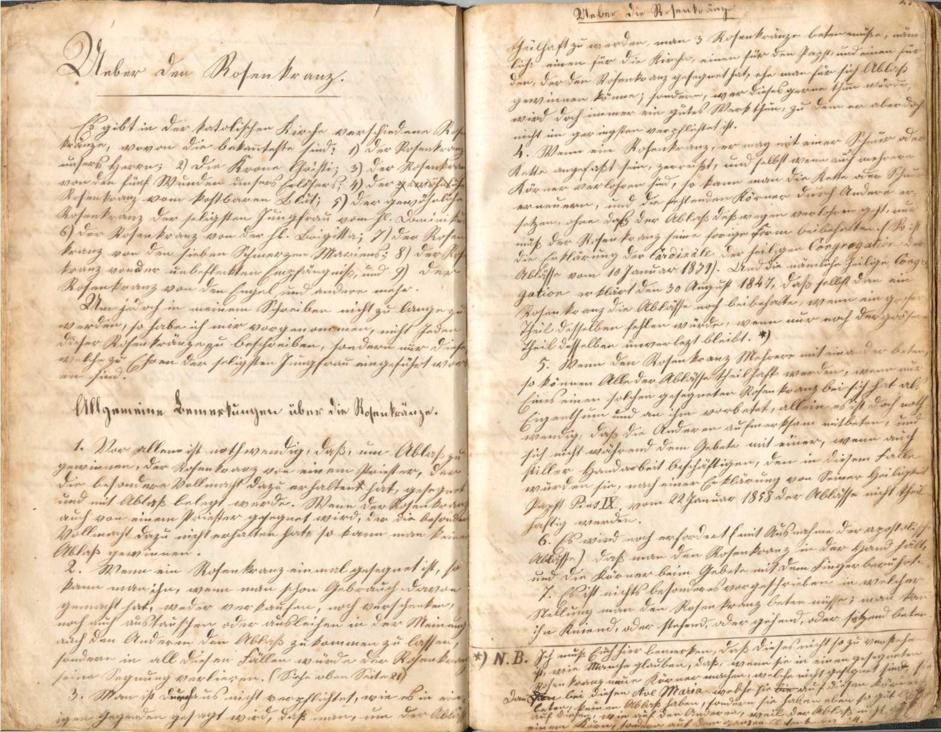 Ueber den Rosenkranz.
Es gibt in der katolischen Kirche verschiedene Rosen
kränze, wovon die bekannteste sind: 1) der Rosenkranz
unsers Herrn; 2) die Krone Christi; 3) der Rosenkranz
von die fünf Wunden unsers Erlösers; 4) der
Rosenkranz vom kostbaren Blut; 5) der gewöhnliche
Rosenkranz der seligsten Jungfrau vom hl. Dominikus
6) der Rosenkranz von der hl. Brigitta; 7) der Rosen
kranz von den sieben Schmerzen Mariens; 8) der Ro
kranz von der unbefleckten Empfängniß, und 9) der
Rosenkranz von den Engel und andere mehr.
Um jedoch in meinem Schreiben nicht zu lange zu
werden, so habe ich mir vorgenommen, nicht jeden
dieser Rosenkränze zu beschreiben, sondern nur diese
welche zu Ehren der seligsten Jungfrau eingeführt wor
en sind.
Allgemeine Bemerkungen über die Rosenkränze.
1. Vor allem ist nothwendig, daß, um Ablaß zu
gewinnen, der Rosenkranz von einem Priester, der
die besondere Vollmacht dazu erhalten hat, gesegnet
und mit Ablaß belegt werde. Wenn der Rosenkranz
auch von einem Priester gesegnet wird, der die besondere
Vollmacht dazu nicht erhalten hat, so kann man keinen
Ablaß gewinnen.
2. Wenn ein Rosenkranz einmal gesegnet ist, so
kann man ihn, wenn man schon Gebrauch davon
gemacht hat, weder verkaufen, noch verschenken,
noch auf austauschen oder ausleihen in der Meinung
auch den Anderen den Ablaß zukommen zu lassen,
sondern in all diesen Fällen würde der Rosenkranz
seine Segnung verlieren. (Siehe oben Seite 21)
3. Man ist durchaus nicht verpflichtet, wie es in ein
igen Gegenden gesagt wird, daß man, um der Abläß
Ueber die Rosenkränz
theilhaft zu werden, man 3 Rosenkränze beten müße, näm
lich einen für die Kirche, einen für den Papst, und einen für
den, der den Rosenkranz gesegnet hat, ehe man für sich Ablaß
gewinnen könne; sondern, wer dieses gerne thun würde,
wird doch immer ein gutes Werk thun, zu dem er aber doch
nicht im geringsten verpflichtet ist.
4. Wenn ein Rosenkranz, er mag mit einer Schnur oder
Kette angefaßt sein, zerreißt, und selbst wenn auch mehrere
Körner verlohren sind, so kann man die Kette oder Schnur
erneuern, und die fehlenden Körner durch Andere er
setzen, ohne daß der Ablaß deßwegen verlohren geht, nur
muß der Rosenkranz seine vorige Form beibehalten. So ist
die Erklärung der Cardinäle der heiligen Congregation der
Ablässe vom 10 Januar 1839). Und die nämliche heilige Congre
gation erklärt den 30 August 1847, daß selbst dan ein
Rosenkranz die Ablässe noch beibehalte, wenn ein
Theil desselben fehlen würde, wenn nur noch der größere
Theil desselben unverletzt bleibt. *)
5. Wenn den Rosenkranz Mehrere miteinander beten,
so können Alle der Ablässe theilhaft werden, wenn nur
Eins einen solchen gesegneten Rosenkranz bei sich hat als
Eigenthum und an ihm vorbetet, allein es ist doch noth
wendig, daß die Anderen aufmerksam mitbeten, und
sich nicht während dem Gebete mit einer, wenn auch
stiller Handarbeit beschäftigen, den in diesem Falle
würden sie, nach einer Erklärung von Seiner Heiligkeit
Papst Pius IX. vom 22 Januar 1858 der Ablässe nicht theil
haftig werden.
6. Es wird noch erfordert (mit Ausnahme der apostolisch
Ablässe) daß man den Rosenkranz in der Hand hält,
und die Körner beim Gebete mit dem Finger berühre.
7. Es ist nichts besonderes vorgeschrieben in welcher
Stellung man den Rosenkranz beten müsse; man kan
ihn kniend, oder stehend, oder gehend, oder sitzend beten
*) N.B. Ich muß Euch hier bemerken, daß dieses nicht so zu verstehen
ist, wie Manche glauben, daß, wenn sie in einen gesegneten
Rosenkranz neue Körner machen, welche nicht gesegnet sind, sie
bei diesen Ave Maria welche sie auf diesen Körnern
beten, kein en Ablaß haben, sondern sie haben eben so gut
auf diesen, wie auf den Anderen, weil der Ablaß nicht auf
einem Korn, sondern auf dem ganzen